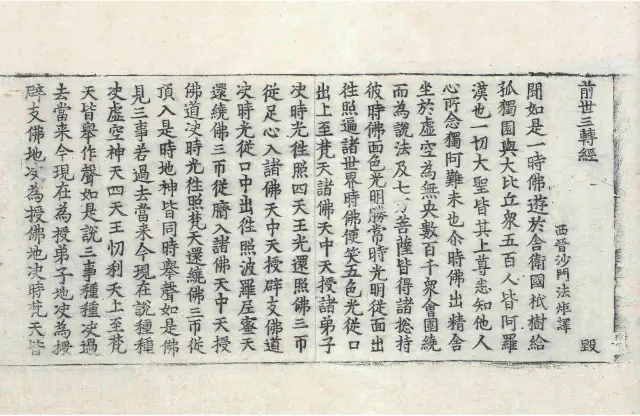 前世三轉經
西晉沙門法炬譯 毀
聞如是一時佛遊於舍衛國祇樹給
孤獨園與大比丘衆五百人皆阿羅
漢也一切大聖皆其上尊悉知他人
心所念獨阿難未也尒時佛出精舍
坐於虛空為無央數百千衆會圍繞
而為說法及七万菩薩皆得諸捴持
彼時佛面色光明勝常時光明從面出
往照遍諸世界時佛便笑五色光從口
出上至梵天諸佛天中天授諸弟子
决時光往照四天王光還照佛三帀
從足心入諸佛天中天授辟支佛道
决時光從口中出往照波羅座蜜天
還繞佛三帀從臍入諸佛天中天授
佛道决時光往照梵天還繞佛三帀從
頂入是時地神皆同時舉聲如是佛
見三事若過去當來今現在說種種
决虛空神天四天王忉利天上至梵
天皆舉作聲如是說三事種種决過
去當来今現在為授弟子地决為授
辟支佛地决為授佛地决時梵天皆